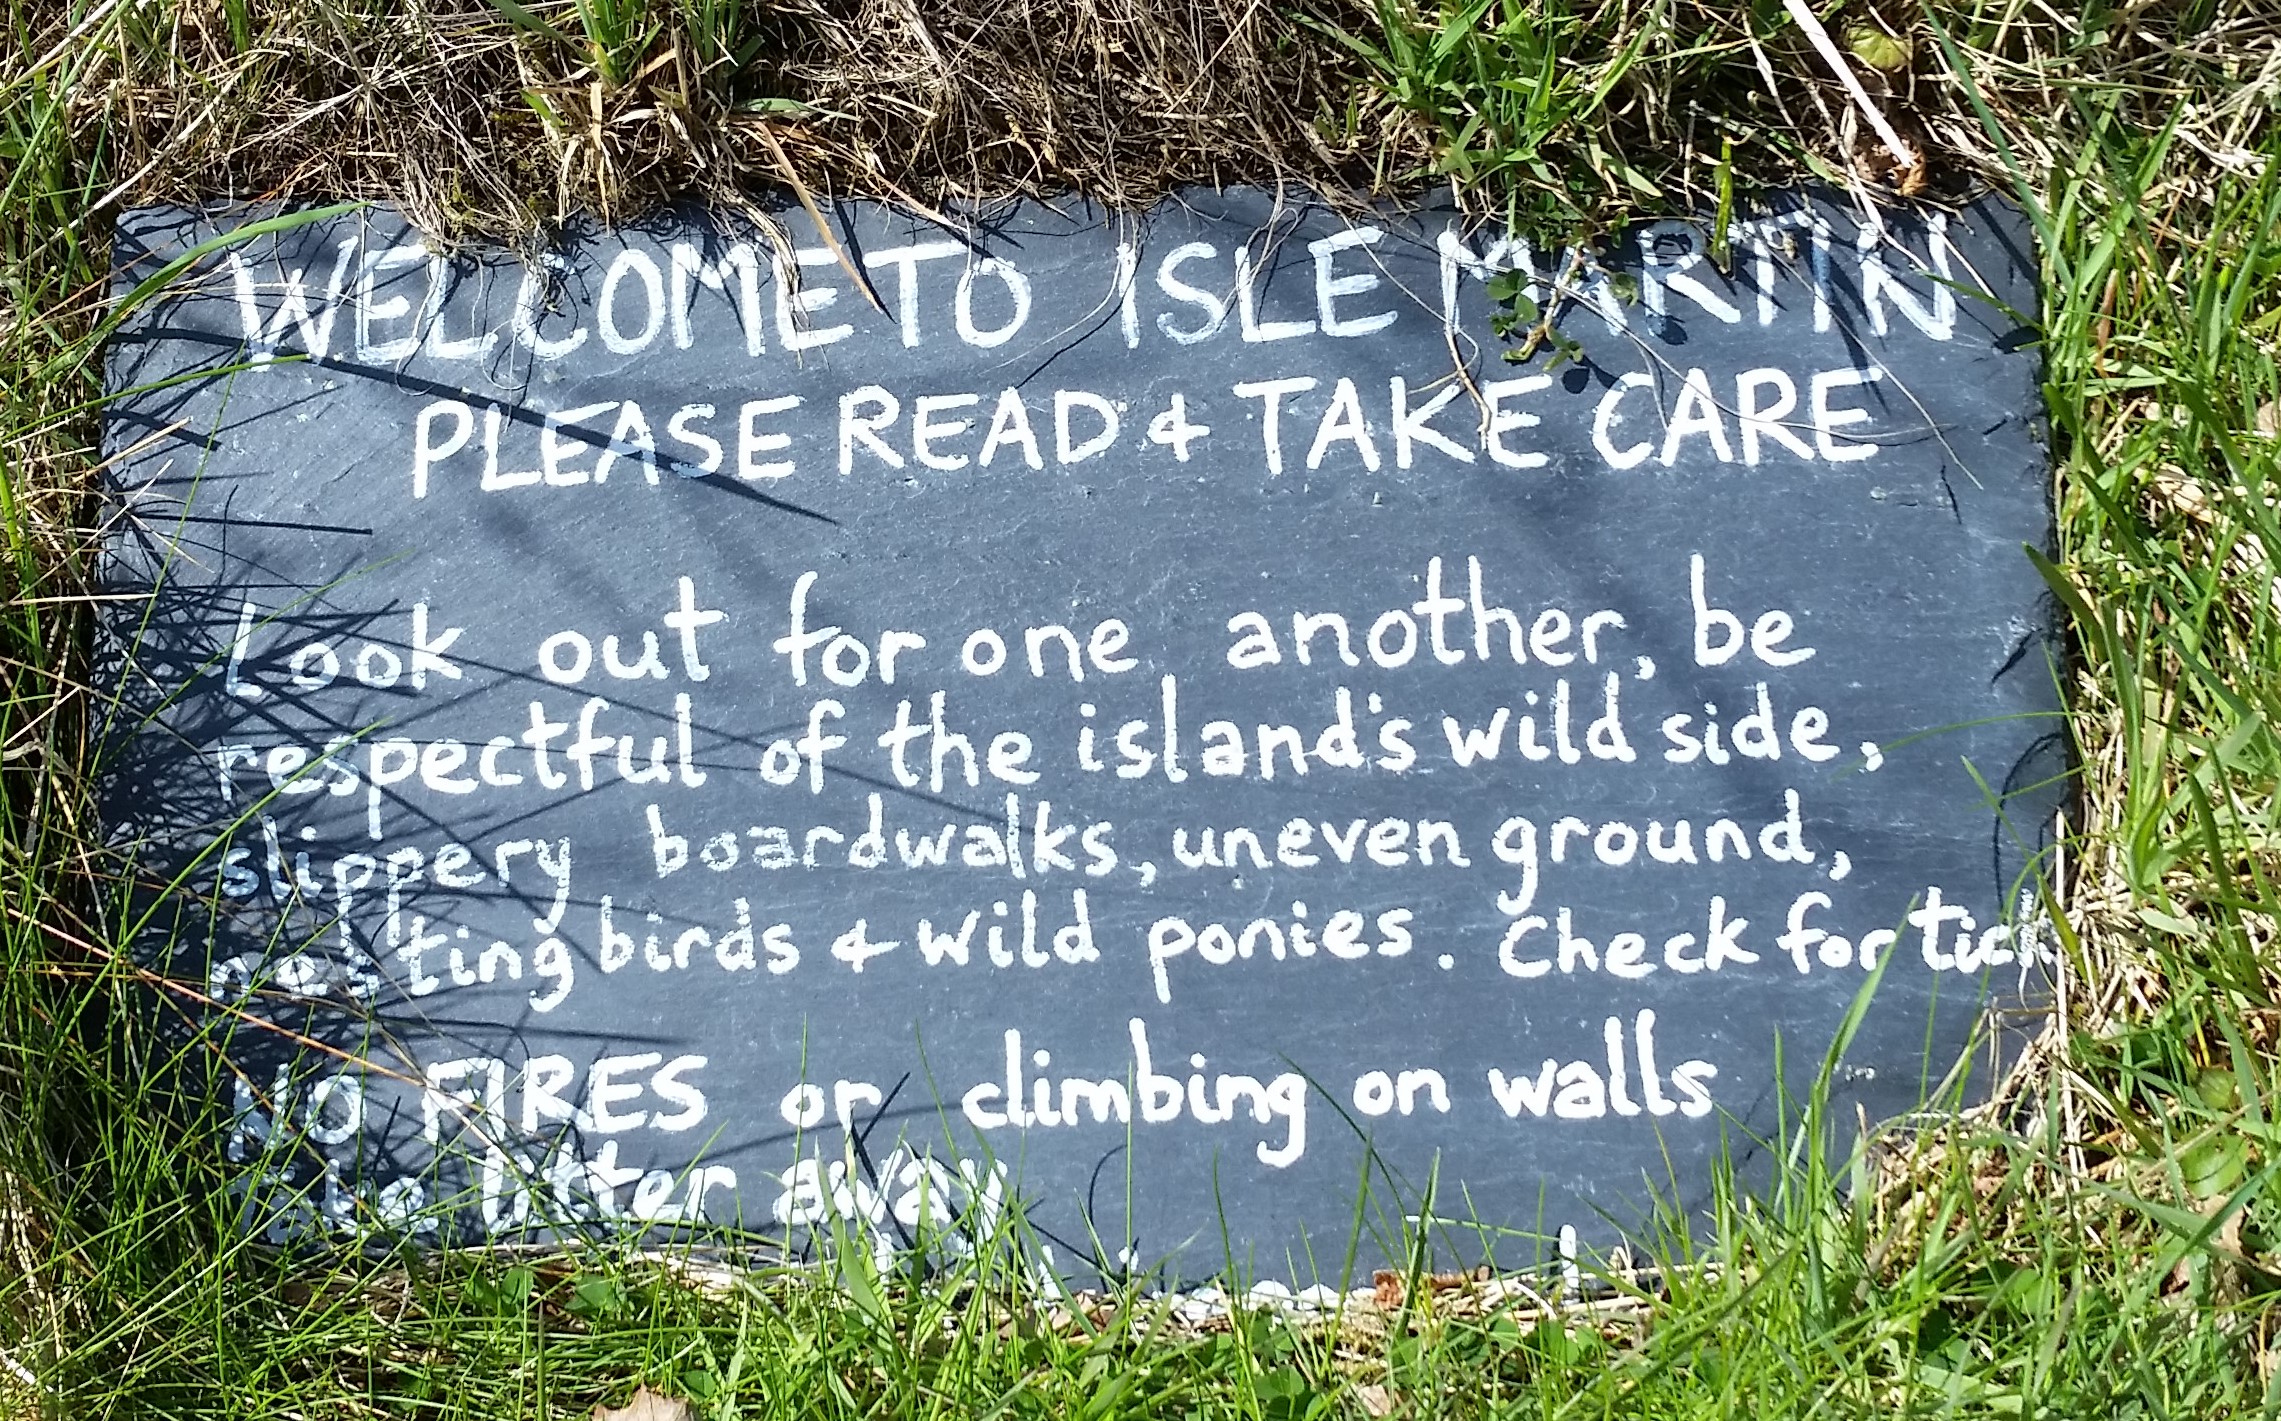 WELCOME TO ISLE MARTIN
PLEASE READ & TAKE CARE
Look out for one another, be
respectful of the island's wild side,
slippery boardwalks, uneven ground,
nesting birds & wild ponies. Check for tick
NO FIRES or climbing on walls
litter away